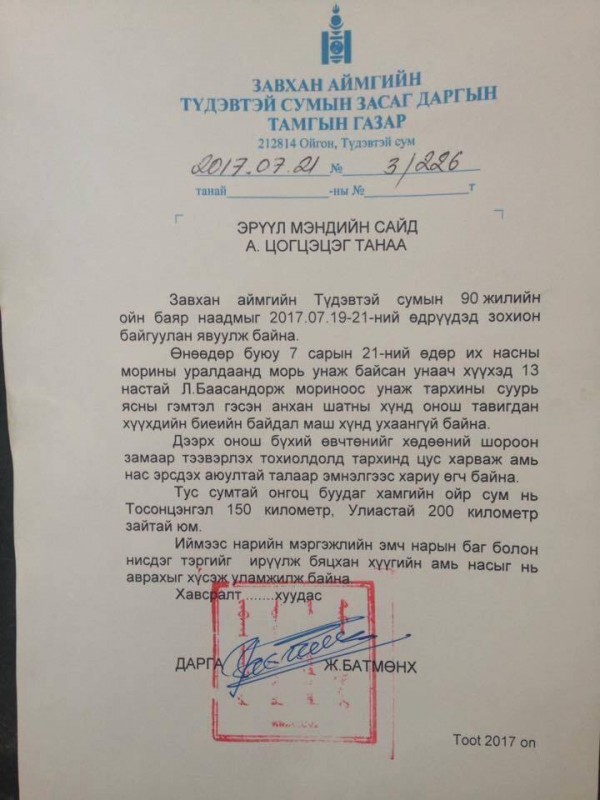 ЗАВХАН АЙМГИЙН
ТҮДЭВТЭЙ СУМЫН ЗАСАГ ДАРГЫН
ТАМГЫН ГАЗАР
212814 Ойгон, Түдэвтэй сум
2017.07.21 № 3/226
танай ______ -ны № ______ т
ЭРҮҮЛ МЭНДИЙН САЙД
А. ЦОГЦЭЦЭГ ТАНАА
Завхан аймгийн Түдэвтэй сумын 90 жилийн
ойн баяр наадмыг 2017.07.19-21-ний өдрүүдэд зохион
байгуулан явуулж байна.
Өнөөдөр буюу 7 сарын 21-ний өдөр их насны
морины уралдаанд морь унаж байсан унаач хүүхэд 13
настай Л.Баасандорж мориноос унаж тархины суурь
ясны гэмтэл гэсэн анхан шатны хүнд онош тавигдан
хүүхдийн биеийн байдал маш хүнд ухаангүй байна.
Дээрх онош бүхий өвчтөнийг хөдөөний шороон
замаар тээвэрлэх тохиолдолд тархинд цус харваж амь
нас эрсдэх аюултай талаар эмнэлгээс хариу өгч байна.
Тус сумтай онгоц буудаг хамгийн ойр сум нь
Тосонцэнгэл 150 километр, Улиастай 200 километр
зайтай юм.
Иймээс нарийн мэргэжлийн эмч нарын баг болон
нисдэг тэргийг ирүүлж бяцхан хүүгийн амь насыг нь
аврахыг хүсэж уламжилж байна
Хавсралт .......хуудас
ДАРГА Ж.БАТМӨНХ
Toot 2017 on